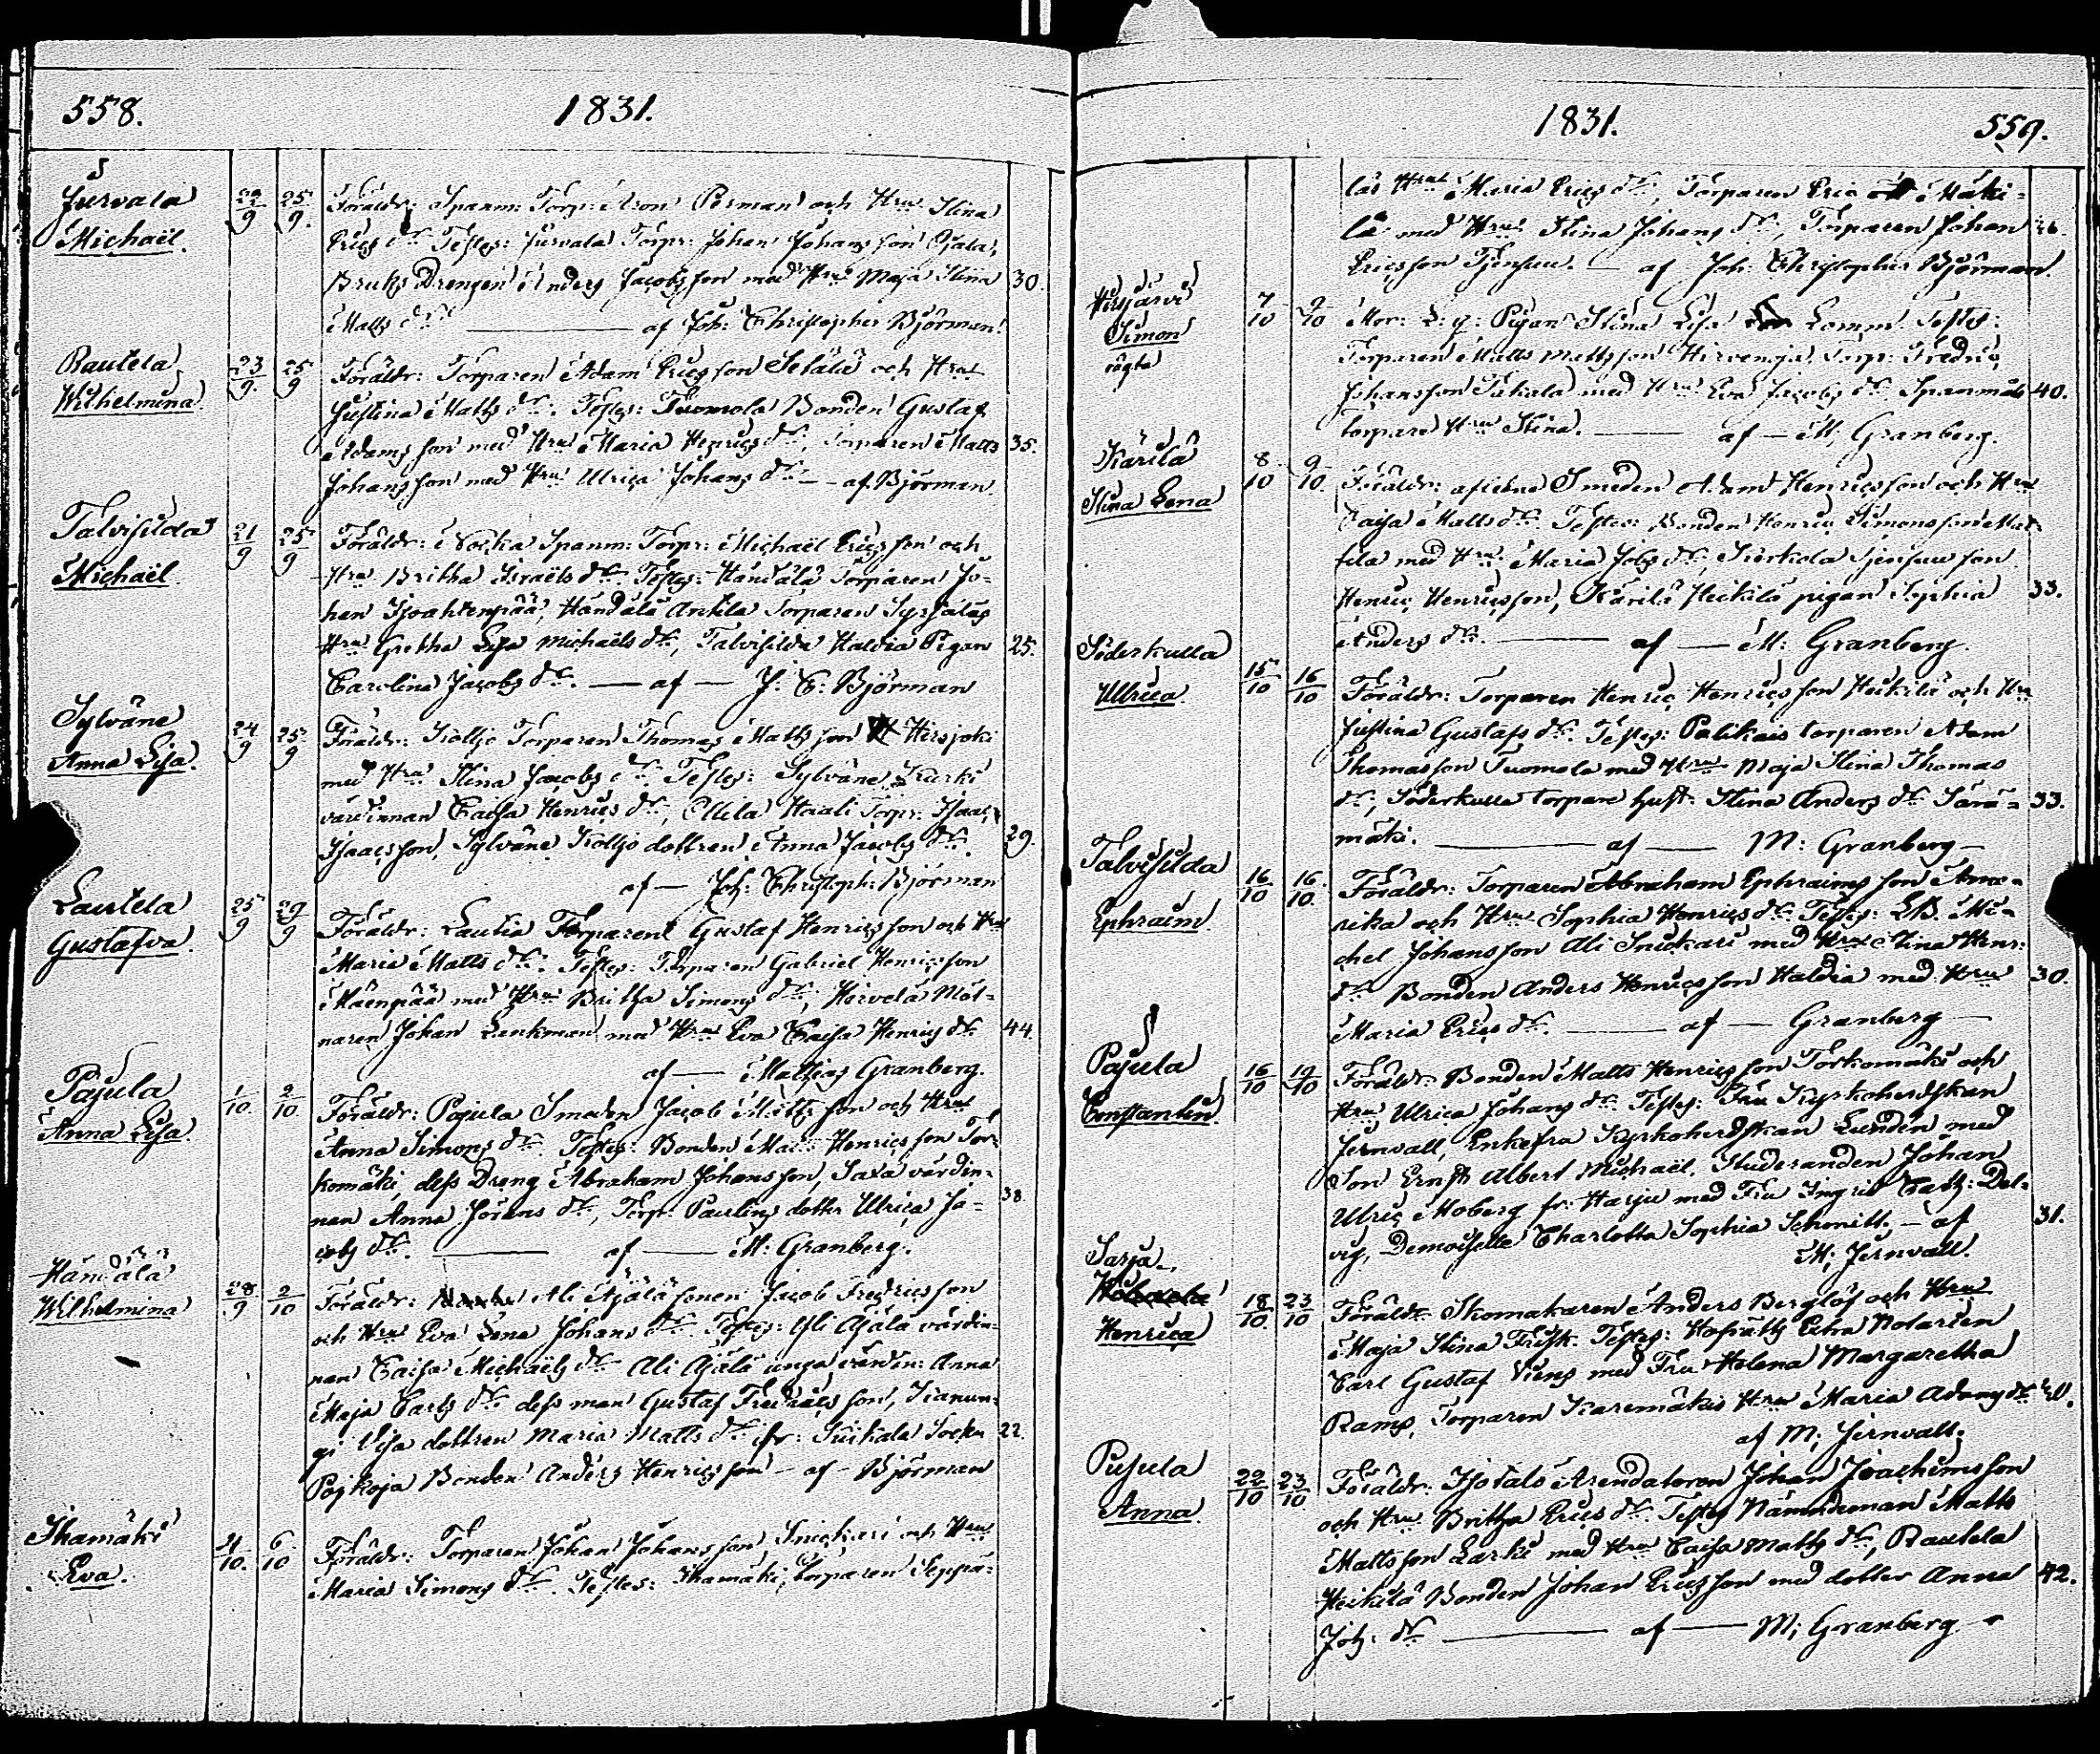 558. 1831.
Jurvala 22/9 25/9. Föräldr: Spanm: Torp: Aron Perman och Hru Stina
Michaël. Erics dr. Testes: Jurvala Torpr: Johan Johansson Ojala,
Bruks Drengen Anders Jacobsson med Hru Maja Stina 30.
Matts dr. — af Joh: Christopher Björman.
Rautela 23/9. 25/9 Föräldr: Torparen Adam Ericsson Setälä och Hru
Wilhelmina. Justina Matts dr. Testes: Tuomola Bonden Gustaf
Adamsson med Hru Maria Henrics dr, Torparen Matts 35.
Johansson med Hru Ulrica Johans dr — af Björman.
Talvisilda 21/9 25/9 Föräldr: Nocka Spanm: Torpr: Michaël Ericsson och
Michaël. Hru Britha Israëls dr. Testes: Händälä Torparen Jo-
han Isoahtenpää, Händälä Antila Torparen Syrjäläs
Hru Gretha Lisa Michaëls dr, Talvisilda Haldia Pigan 25.
Carolina Jacobs dr. — af — J: C: Björman
Sylväne 24/9 25/9 Föräldr: Koljo Torparen Thomas Mattsson Hirsjoki
Anna Lisa. med Hru Stina Jacobs dr Testes: Sylväne Kurki
värdinnan Caisa Henrics dr, Ollila Haali Torpr: Isaac
Isaacsson, Sylväne Koljo dottren Anna Jacobs dr. 29.
af — Joh: Christoph: Björman
Lautela 25/9 29/9 Föräldr: Lautia Torparen Gustaf Henricsson och Hru
Gustafva. Maria Matts dr. Testes: Torparen Gabriel Henricsson
Mäenpää med Hru Britha Simons dr, Hirvelä Möl-
naren Johan Lankman med Hru Eva Caisa Henrics dr 44.
af — Mathias Granberg.
Pajula 1/10. 2/10 Föräldr: Pajula Smeden Jacob Mattsson och Hru
Anna Lisa. Anna Simons dr. Testes: Bonden Matts Henricsson Tor-
komäki, dess Dreng Abraham Johansson, Saxa värdin-
nan Anna Jörans dr, Torpr Paulins dotter Ulrica Ja- 38.
cobs dr. — af — M: Granberg.
Händälä 28/9 2/10 Föräldr: Ali Äjälä sonen Jacob Fredricsson
Wilhelmina och Hru Eva Lena Johans dr. Testes: Yli Äjälä värdin-
nan Caisa Michaëls dr Ali Äjälä unga värdin: Anna
Maja Carls dr dess man Gustaf Fredricsson,
dottren Maria Matts dr fr: 22.
Bonden Anders Henricsson — af — Björman
Ihamäki 4/10. 6/10 Föräldr: Torparen Johan Johansson Snickari och Hru
Eva. Maria Simons dr. Testes: Ihamäki, Torparen Seppä-
1831. 559.
läs Hru Maria Erics dr, Torparen Eric Mäki-
lä med Hru Stina Johans dr, Torparen Johan 26.
Ericsson — af Joh: Christopher Björman.
Hirjärvi 7/10 9/10 Mor: L: q: Pigan Stina Lisa Lomm. Testes:
Simon Torparen Matts Mattsson Hirvenoja, Torpr: Fredric
oägta Johansson Takala med Hru Eva Jacobs dr Spanmåls 40.
torpare Hru Stina. — af — M: Granberg.
Kärilä 8/10 9/10. Föräldr: aflidne Smeden Adam Henricsson och Hru
Stina Lena Caisa Matts dr. Testes: Bonden Henric Simonsson Mat-
tila med Hru Maria Johs dr,
Henric Henricsson, Kärilä Heikilä pigan Sophia 33.
Anders dr. — af — M: Granberg.
Söderkulla 15/10 16/10 Föräldr: Torparen Henric Henricsson Heikilä och Hru
Ulrica. Justina Gustafs dr. Testes: Palikais torparen Adam
Thomasson Tuomola med Hru Maja Stina Thomas
dr, Söderkulla torpare hust: Stina Anders dr Särä- 33.
mäki. — af — M: Granberg —
Talvisilda 16/10 16/10. Föräldr: Torparen Abraham Ephraimsson Ame-
Ephraim. rika och Hru Sophia Henrics dr Testes: LB. Mi-
chel Johansson Ali Snickari med Hru Stina Henr:
dr Bonden Anders Henricsson Haldia med Hru 30.
Maria Erics dr. — af — Granberg —
Pajula 16/10 19/10 Föräldr: Bonden Matts Henricsson Torkomäki och
Constantin. Hru Ulrica Johans dr Testes: Fru Kyrkoherdskan
Jernvall, Enkefru Kyrkoherdskan Lunden med
Son Ernst Albert Michaël, Studeranden Johan
Ulric Moberg fr: Harju med Fru Ingrid Cath: Dal-
vig, Demoiselle Charlotta Sophia Schmitt. — af 31.
M; Jernvall.
Sarja
Henrica 18/10 23/10 Föräldr: Skomakaren Anders Berglöf och Hru
Maja Stina Frisk. Testes: Hofrätts Extra Notarien
Carl Gustaf Viens med Fru Helena Margaretha
Ramp, Torparen Karimäkis Hru Maria Adams dr 40.
af M; Jernvall.
Pajula 22/10 23/10 Föräldr: Isotalo Arendatoren Johan Joachimsson
Anna. och Hru Britha Erics dr Testes Nämndeman Matts
Mattsson Larki med Hru Caisa Matts dr, Rautela
Heikilä Bonden Johan Ericsson med dotter Anna 42.
Joh: dr — af — M; Granberg —